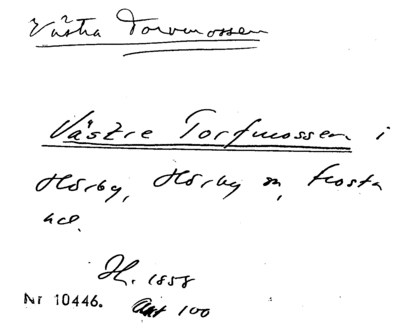 Västra Torvmossen
Västre Torfmossen i
Hörby, Hörby sn, Frosta
hd.
H. 1858
Nr 10446. Akt 100